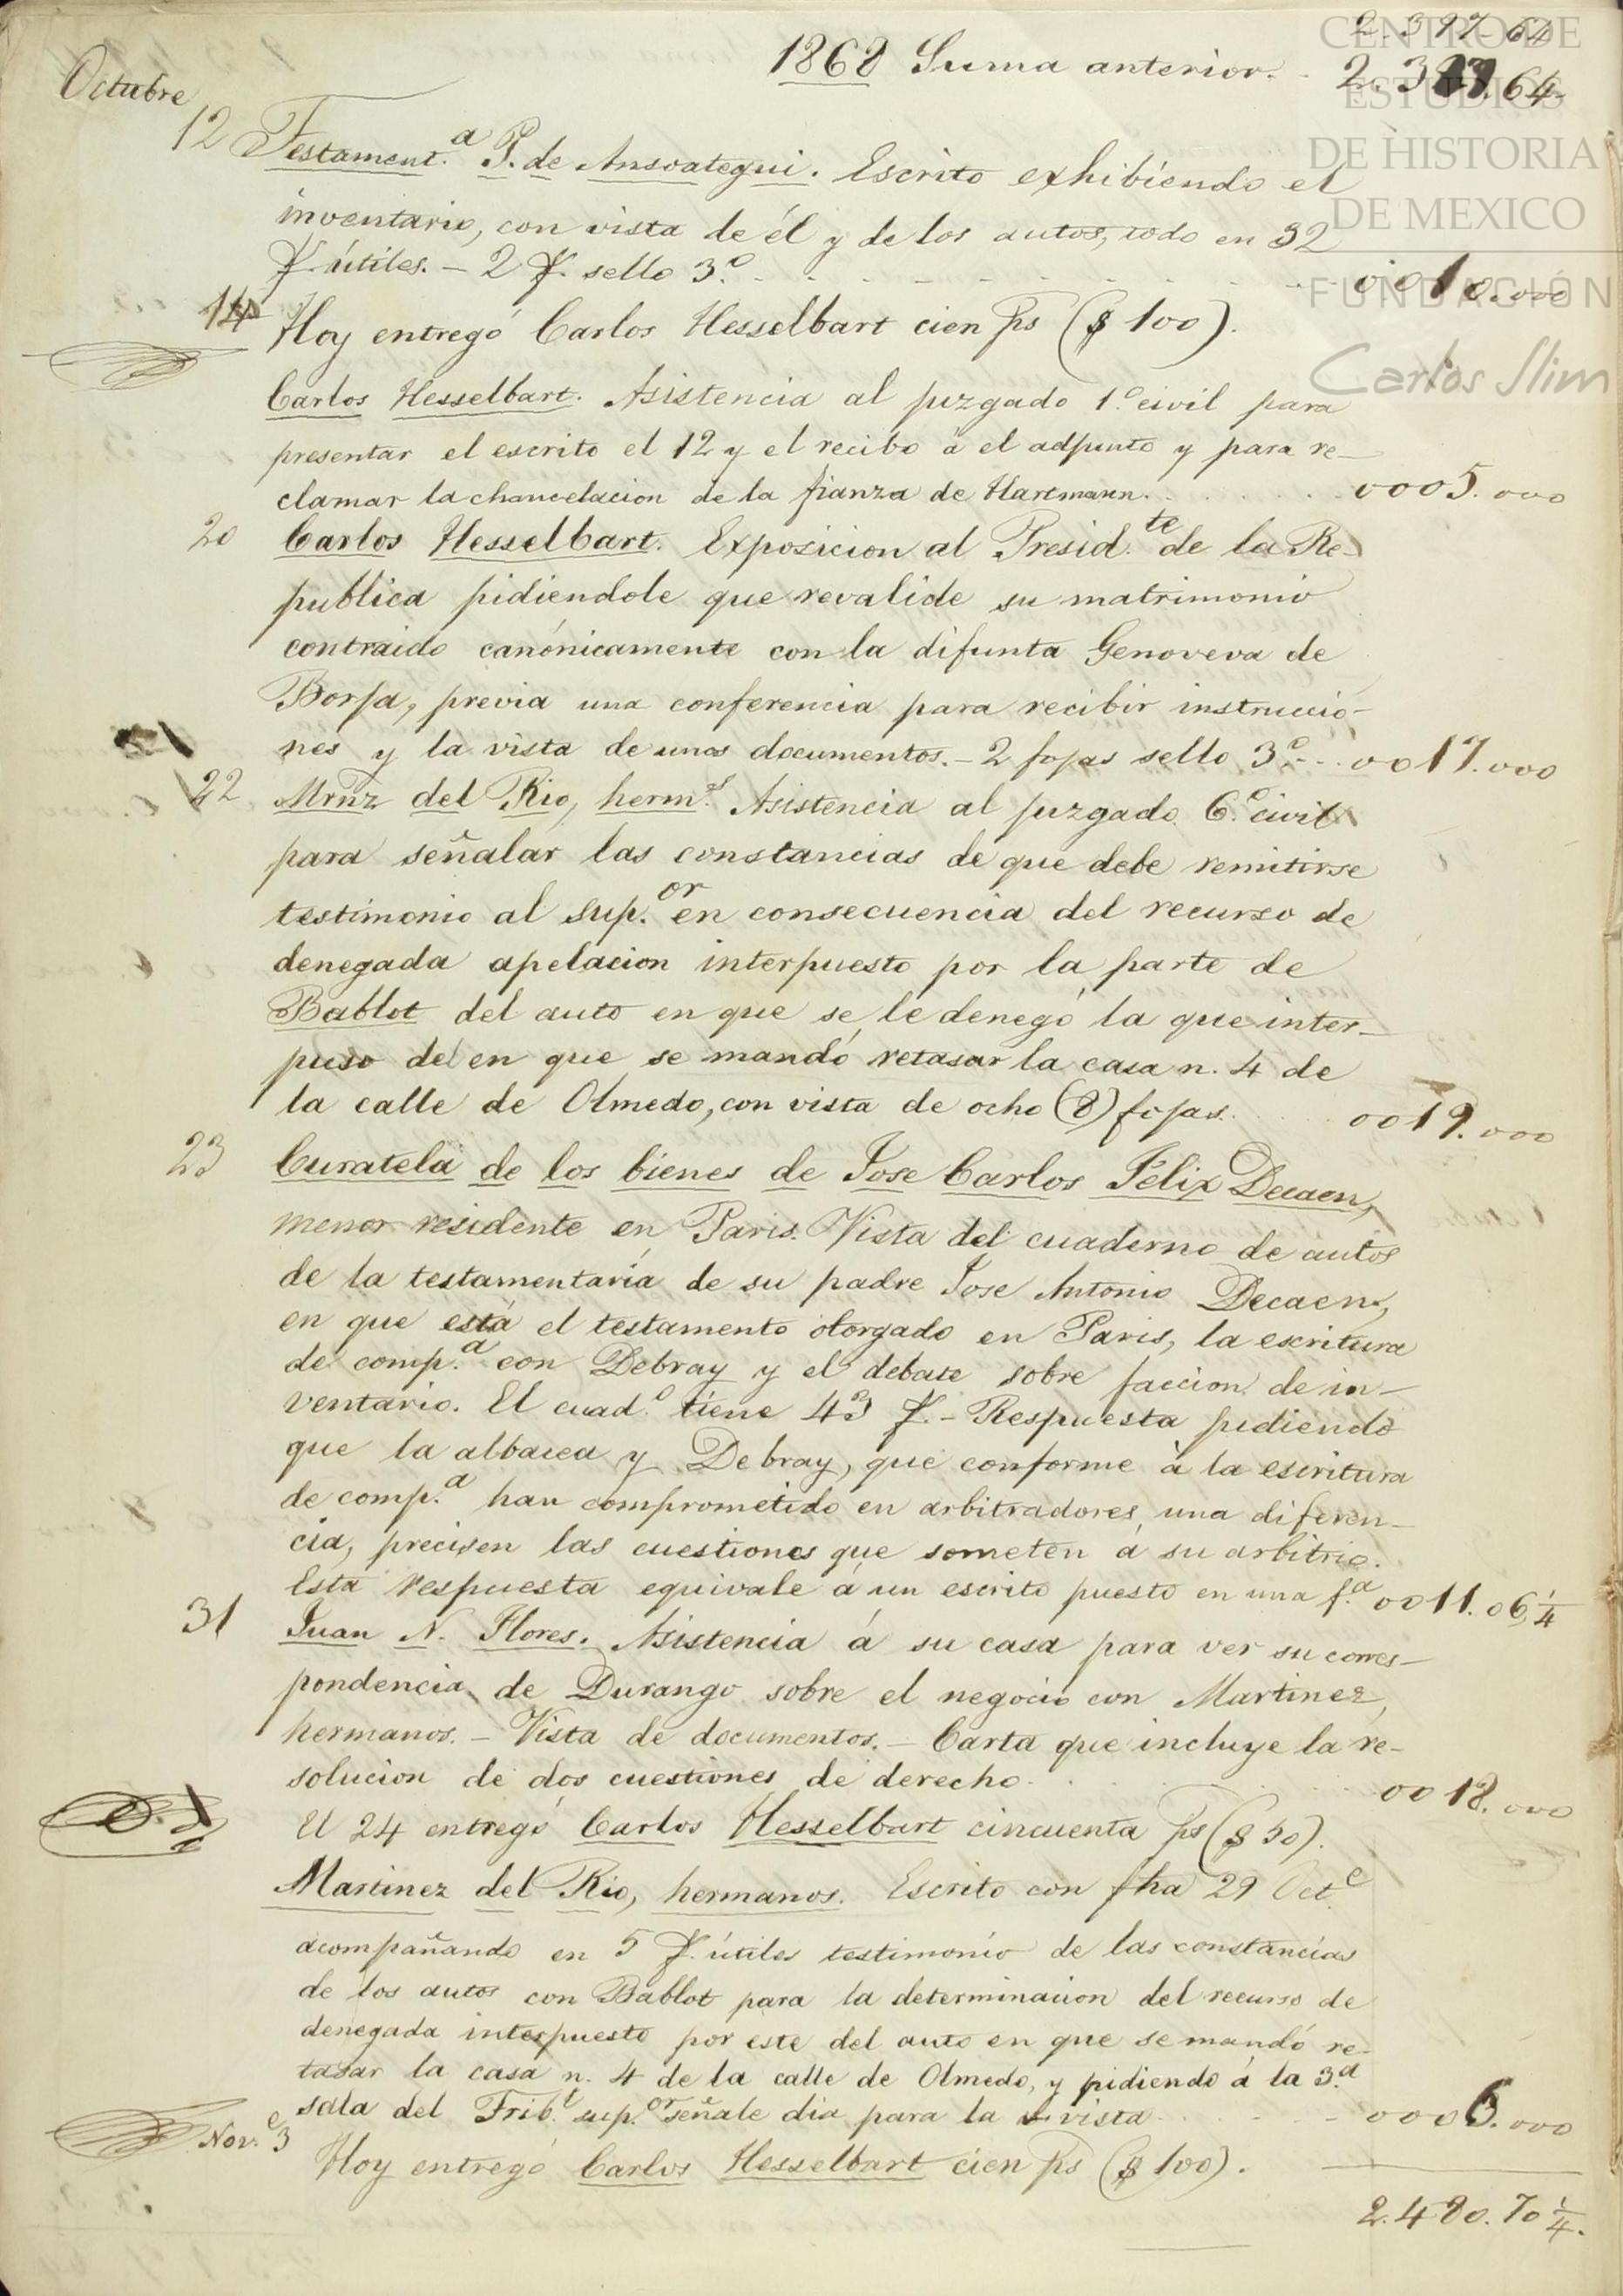 2.397-64
1868 Suma anterior. - 2.397.64-
Octubre
12 Testament.ª P. de Ansoategui. Escrito exhibiendo el
inventario, con vista de él y de los autos, todo en 32
f. útiles. - 2 f. sello 3.º - - - 0010.000
14 Hoy entregó Carlos Hesselbart cien ps ($ 100).
Carlos Hesselbart. Asistencia al juzgado 1.º civil para
presentar el escrito el 12 y el recibo á el adjunto y para re-
clamar la chancelacion de la fianza de Hartmann. 0005.000
20 Carlos Hesselbart. Exposicion al Presid.te de la Re-
publica pidiendole que revalide su matrimonio
contraido canónicamente con la difunta Genoveva de
Borja, previa una conferencia para recibir instruccio-
nes y la vista de unos documentos. - 2 fojas sello 3.º - - 0017.000
22 Mrnz del Rio, herm.s Asistencia al juzgado 6.º civil
para señalar las constancias de que debe remitirse
testimonio al sup.or en consecuencia del recurso de
denegada apelacion interpuesto por la parte de
Bablot del auto en que se le denegó la que inter-
puso del en que se mandó retasar la casa n. 4 de
la calle de Olmedo, con vista de ocho (8) fojas. 0019.000
23 Curatela de los bienes de Jose Carlos Félix Decaen,
menor residente en Paris. Vista del cuaderno de autos
de la testamentaría de su padre Jose Antonio Decaen,
en que está el testamento otorgado en Paris, la escritura
de comp.ª con Debray y el debate sobre faccion de in-
ventario. El cuad.º tiene 43 f. - Respuesta pidiendo
que la albacea y Debray, que conforme à la escritura
de comp.ª han comprometido en arbitradores, una diferen-
cia, precisen las cuestiones que someten á su arbitrio.
Esta respuesta equivale á un escrito puesto en una f.ª 0011.06¼
31 Juan N. Flores. Asistencia á su casa para ver su corres-
pondencia de Durango sobre el negocio con Martinez,
hermanos. - Vista de documentos. - Carta que incluye la re-
solucion de dos cuestiones de derecho. 0018.000
El 24 entregó Carlos Hesselbart cincuenta ps ($ 50).
Martinez del Rio, hermanos. Escrito con fha 29 Oct.e
acompañando en 5 f. útiles testimonio de las constancias
de los autos con Bablot para la determinacion del recurso de
denegada interpuesto por este del auto en que se mandó re-
tasar la casa n. 4 de la calle de Olmedo, y pidiendo á la 3.ª
sala del Trib.l sup.or señale dia para la vista - 0003.000
Nov.e 3 Hoy entregó Carlos Hesselbart cien ps ($ 100).
2.480.70¼.
CENTRO DE
ESTUDIOS
DE HISTORIA
DE MEXICO
FUNDACIÓN
Carlos Slim